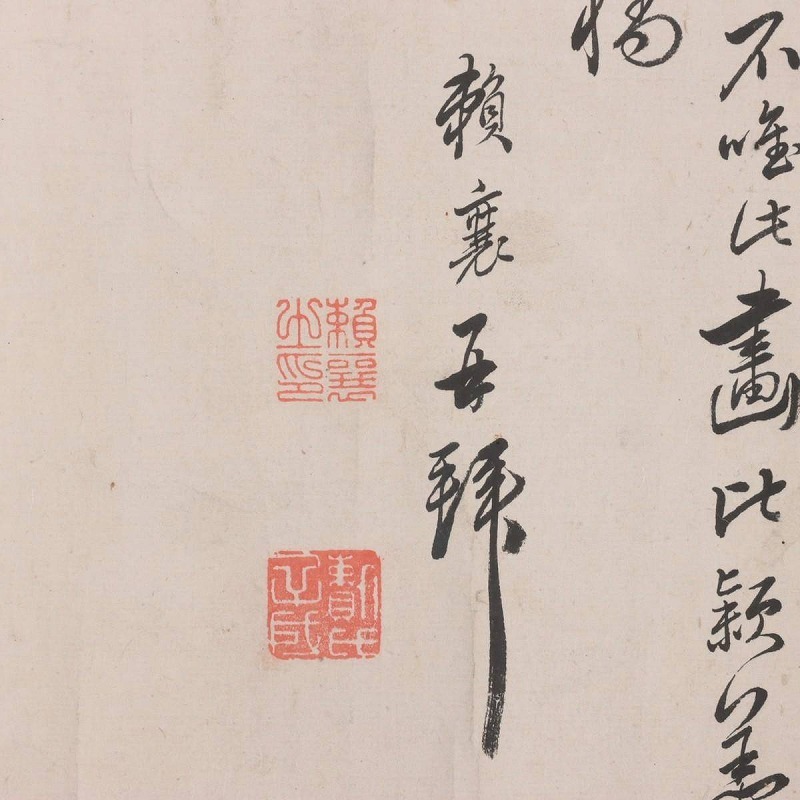 不唯此畫比穎
賴襄再拜
賴襄之印
子成